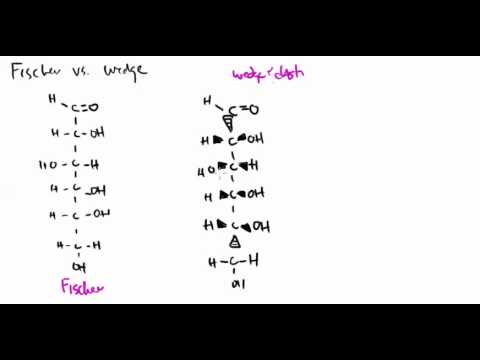 Fischer vs. wedge
wedge + dash
H C=O
H-C-OH
HO-C-H
H-C-OH
H-C-OH
H-C-H
OH
Fischer
H C=O
H C OH
HO C H
H C OH
H C OH
H-C-H
OH